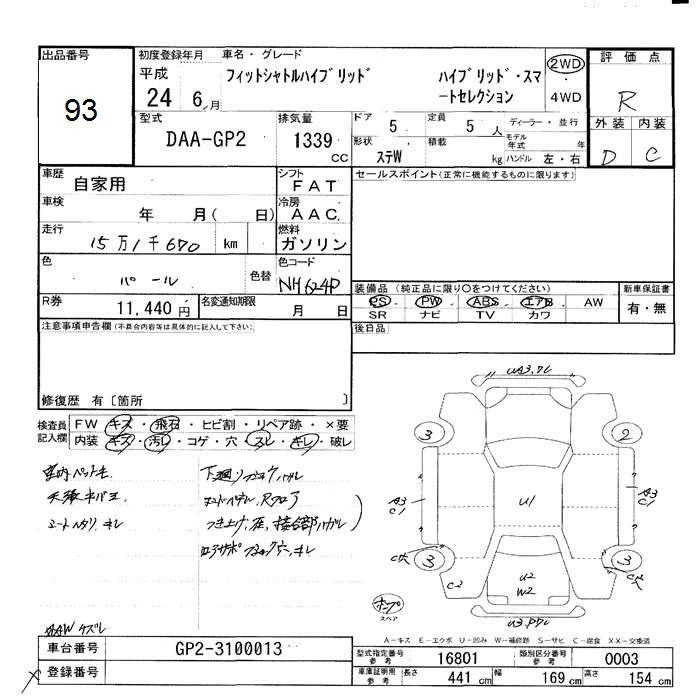 出品番号
93
初度登録年月
平成
24 6 月
車名・グレード
フィットシャトルハイブリッド
ハイブリッド・スマ
ートセレクション
2WD
4WD
評価点
R
外装 内装
D C
型式
DAA-GP2
排気量
1339
CC
ドア 5
定員 5 人
ディーラー・並行
モデル
年式 年
形状
ステW
積載 kg
ハンドル 左・右
車歴
自家用
シフト
FAT
車検
年 月( 日)
冷房
AAC
走行
15万1千670 km
燃料
ガソリン
色
パール
色替
色コード
NH624P
R券
11,440円
名変通知期限
月 日
セールスポイント(正常に機能するものに限ります)
装備品 (純正品に限り〇をつけてください)
PS PW ABS エアB AW
SR ナビ TV カワ
新車保証書
有・無
後日品
注意事項申告欄(不具合内容等は具体的に記入して下さい)
修復歴 有〔箇所 〕
検査員
記入欄
FW キズ・飛石・ヒビ割・リペア跡・×要
内装 キズ・汚レ・コゲ・穴・スレ・キレ・破レ
シートヘタリ キレ
つき上げ、圧、接合部ハガレ
3
2
A3
C1
U1
A3
C1
3
3
C2
U2
W2
スペア
A-キズ E-エクボ U-凹み W-補修跡 S-サビ C-腐食 XX-交換済
車台番号
GP2-3100013
登録番号
型式指定番号
参考
16801
類別区分番号
参考
0003
車庫証明用
参考
長さ 441 cm
幅 169 cm
高さ 154 cm